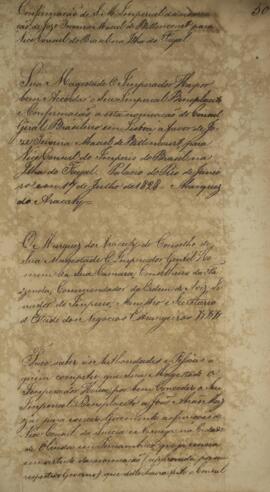 Confirmação de S. M. Imperial da nomea-
ção de Jozé Severino Maciel de Bettencourt para
Vice Consul do Brasil na Ilha do Fayal
50
Sua Magestade O Imperador Ha por
bem Accordar o Seu Imperial Beneplacito
e Confirmação a esta nomeação do Consul
Geral Brasileiro em Lisboa a favor de Jo-
zé Severino Maciel de Bettencourt, para
Vice Consul do Imperio do Brasil na
Ilha do Fayal. Palacio do Rio de Janei-
ro em 17 de Julho de 1828 - Marquez
do Aracaty
O Marquez do Aracaty do Conselho de
Sua Magestade O Imperador, Gentil Ho-
mem da Sua Camara, Conselheiro da Fa-
zenda, Commendador da Ordem de Aviz, Se-
nador do Imperio, Ministro e Secretario
d'Estado dos Negocios Estrangeiros
Faço saber as Authoridades e Pessôas a
quem competir que Sua Magestade O
Imperador Houve por bem Conceder o Seu
Imperial Beneplacito a
para exercer
Vice Consul da Suecia e Noruega na Cidade
de Olinda em Pernambuco
pelo
respectivo Governo) que o Consul